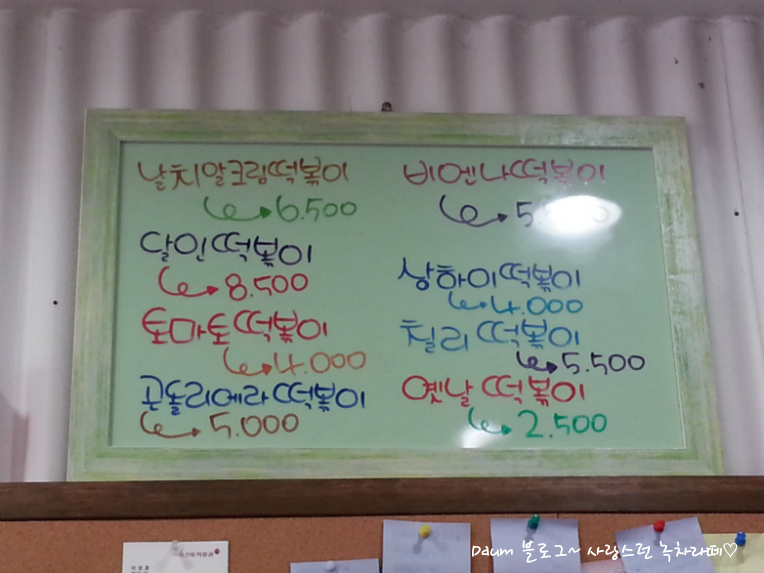 날치알크림떡볶이
6.500
달인떡볶이
8.500
토마토떡볶이
4.000
곤돌리에라떡볶이
5.000
비엔나떡볶이
상하이떡볶이
4.000
칠리떡볶이
5.500
옛날떡볶이
2.500
Daum 블로그~ 사랑스런 녹차라떼♡